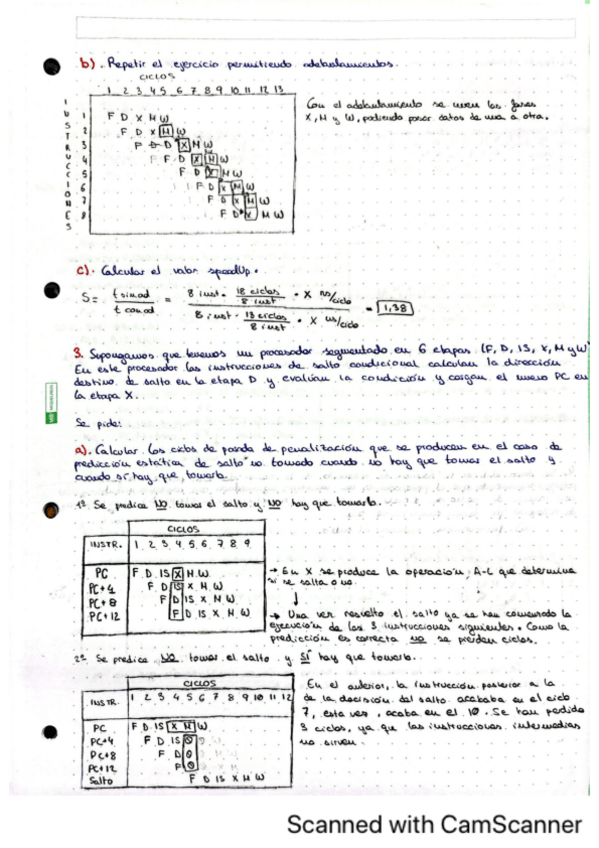 b). Repetir el ejercicio permitiendo adelantamientos.
CICLOS
1 2 3 4 5 6 7 8 9 10 11 12 13
INSTRUCCIONES
1 F D X M W
2 F D X M W
3 F D D X M W
4 F F D X M W
5 F D X M W
6 F D X M W
7 F D X M W
8 F D X M W
Con el adelantamiento se unen las fases
X, M y W, pudiendo pasar datos de una a otra.
c). Calcular el valor speedUp.
S = t sin ad / t con ad = 8 inst · 18 ciclos / 8 inst · X ns/ciclo / 8 inst · 13 ciclos / 8 inst · X ns/ciclo = 1,38
3. Supongamos que tenemos un procesador segmentado en 6 etapas (F, D, IS, X, M y W)
En este procesador las instrucciones de salto condicional calculan la dirección
destino de salto en la etapa D y evalúan la condición y cargan el nuevo PC en
la etapa X.
Se pide:
a). Calcular los ciclos de parada de penalización que se producen en el caso de
predicción estática de salto no tomado cuando no hay que tomar el salto y
cuando sí hay que tomarlo.
1º Se predice NO tomar el salto y NO hay que tomarlo.
CICLOS
INSTR. 1 2 3 4 5 6 7 8 9
PC F D IS X M W
PC+4 F D IS X M W
PC+8 F D IS X M W
PC+12 F D IS X M W
→ En X se produce la operación A-L que determina
si se salta o no.
→ Una vez resuelto el salto ya se han comenzado la
ejecución de las 3 instrucciones siguientes. Como la
predicción es correcta no se pierden ciclos.
2º Se predice NO tomar el salto y SÍ hay que tomarlo.
CICLOS
INSTR. 1 2 3 4 5 6 7 8 9 10 11 12
PC F D IS X M W
PC+4 F D IS
PC+8 F D
PC+12 F
Salto F D IS X M W
En el anterior, la instrucción posterior a la
de la decisión del salto acababa en el ciclo
7, esta vez, acaba en el 10. Se han perdido
3 ciclos, ya que las instrucciones intermedias
no sirven.
Scanned with CamScanner